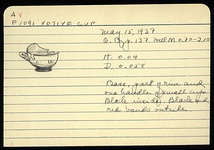 A v
P 1091 VOTIVE CUP
May 15, 1937
H. 0.04
D. 0.058
Base, part of rim and
one handle of small cup.
Black inside. Black and
red bands outside